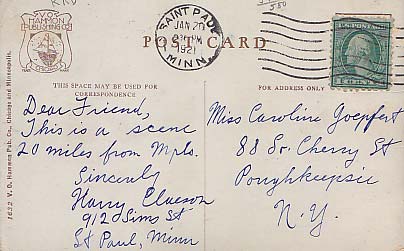 V.O.
HAMMON
PUBLISHING CO.
CHICAGO
TRADE MARK
SAINT PAUL
JAN 20
PM
1921
MINN.
POST CARD
U.S. POSTAGE
THIS SPACE MAY BE USED FOR
CORRESPONDENCE
FOR ADDRESS ONLY
Dear Friend,
This is a scene
20 miles from Mpls.
Sincerely
Harry Claeson
912 Sims St
St Paul, Minn
Miss Caroline Goepfert
88 So. Cherry St
Poughkeepsie
N.Y.
1632 V. O. Hammon Pub. Co., Chicago and Minneapolis.